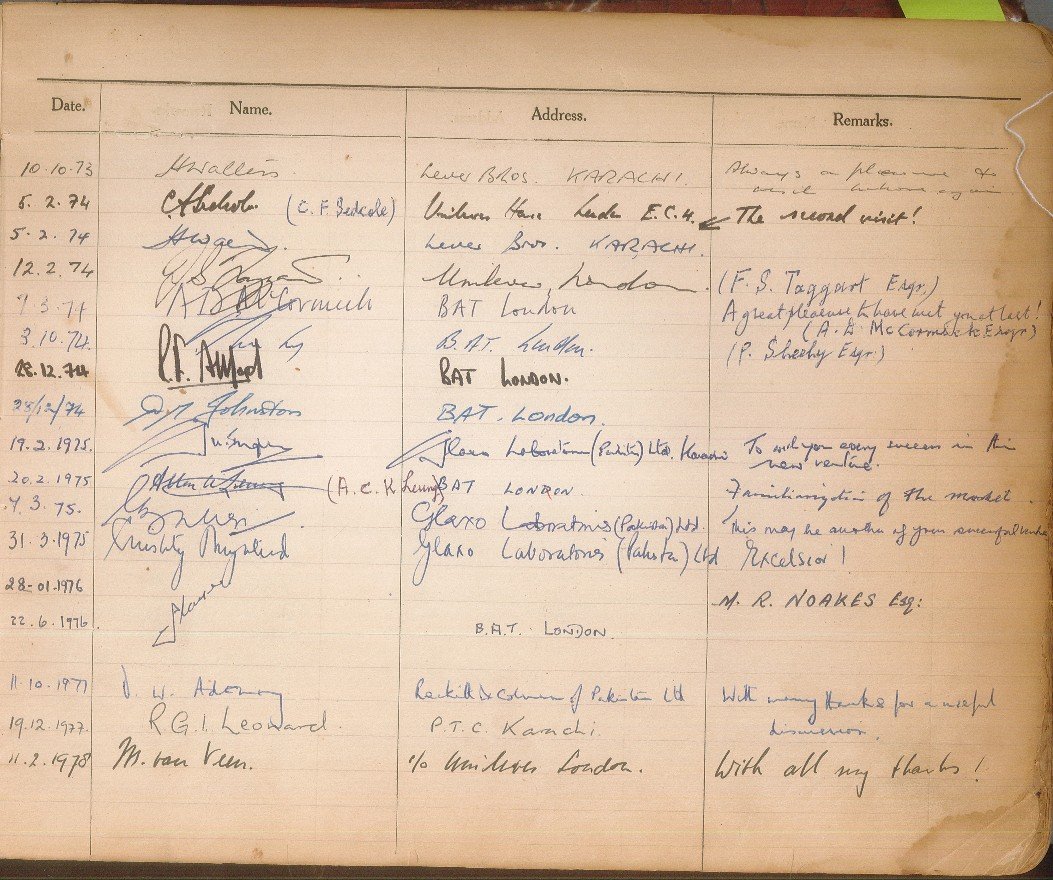 Date. Name. Address. Remarks.
10.10.73 Lever Bros. KARACHI. Always a pleasure to
again
5.2.74 (C.F. Sedcole) Unilever House London E.C.4. The second visit!
5.2.74 Lever Bros. KARACHI.
12.2.74 Unilever, London. (F. S. Taggart Esqr.)
3.74 A D McCormick BAT London A great pleasure to have met you at last!
(A. D. McCormick Esqr)
3.10.74. B.A.T. London. (P. Sheehy Esqr.)
28.12.74 BAT LONDON.
23/12/74 Johnston BAT. London.
19.2.1975. Glaxo Laboratories (Pakistan) Ltd. Karachi To wish you every success in this
new venture.
20.2.1975 (A. C. K Leung) BAT LONDON. Familiarization of the market.
3.75. Glaxo Laboratories (Pakistan) Ltd. This may be another of your successful ventures
31.3.1975 Glaxo Laboratories (Pakistan) Ltd Excelsior!
28-01.1976
M. R. NOAKES Esq:
22.6.1976 B.A.T. LONDON.
11.10.1977 Reckitt & Colman of Pakistan Ltd With many thanks for a useful
discussion.
19.12.1977. R.G.I. Leonard. P.T.C. Karachi.
11.2.1978 M. van Veen. c/o Unilever London. With all my thanks!